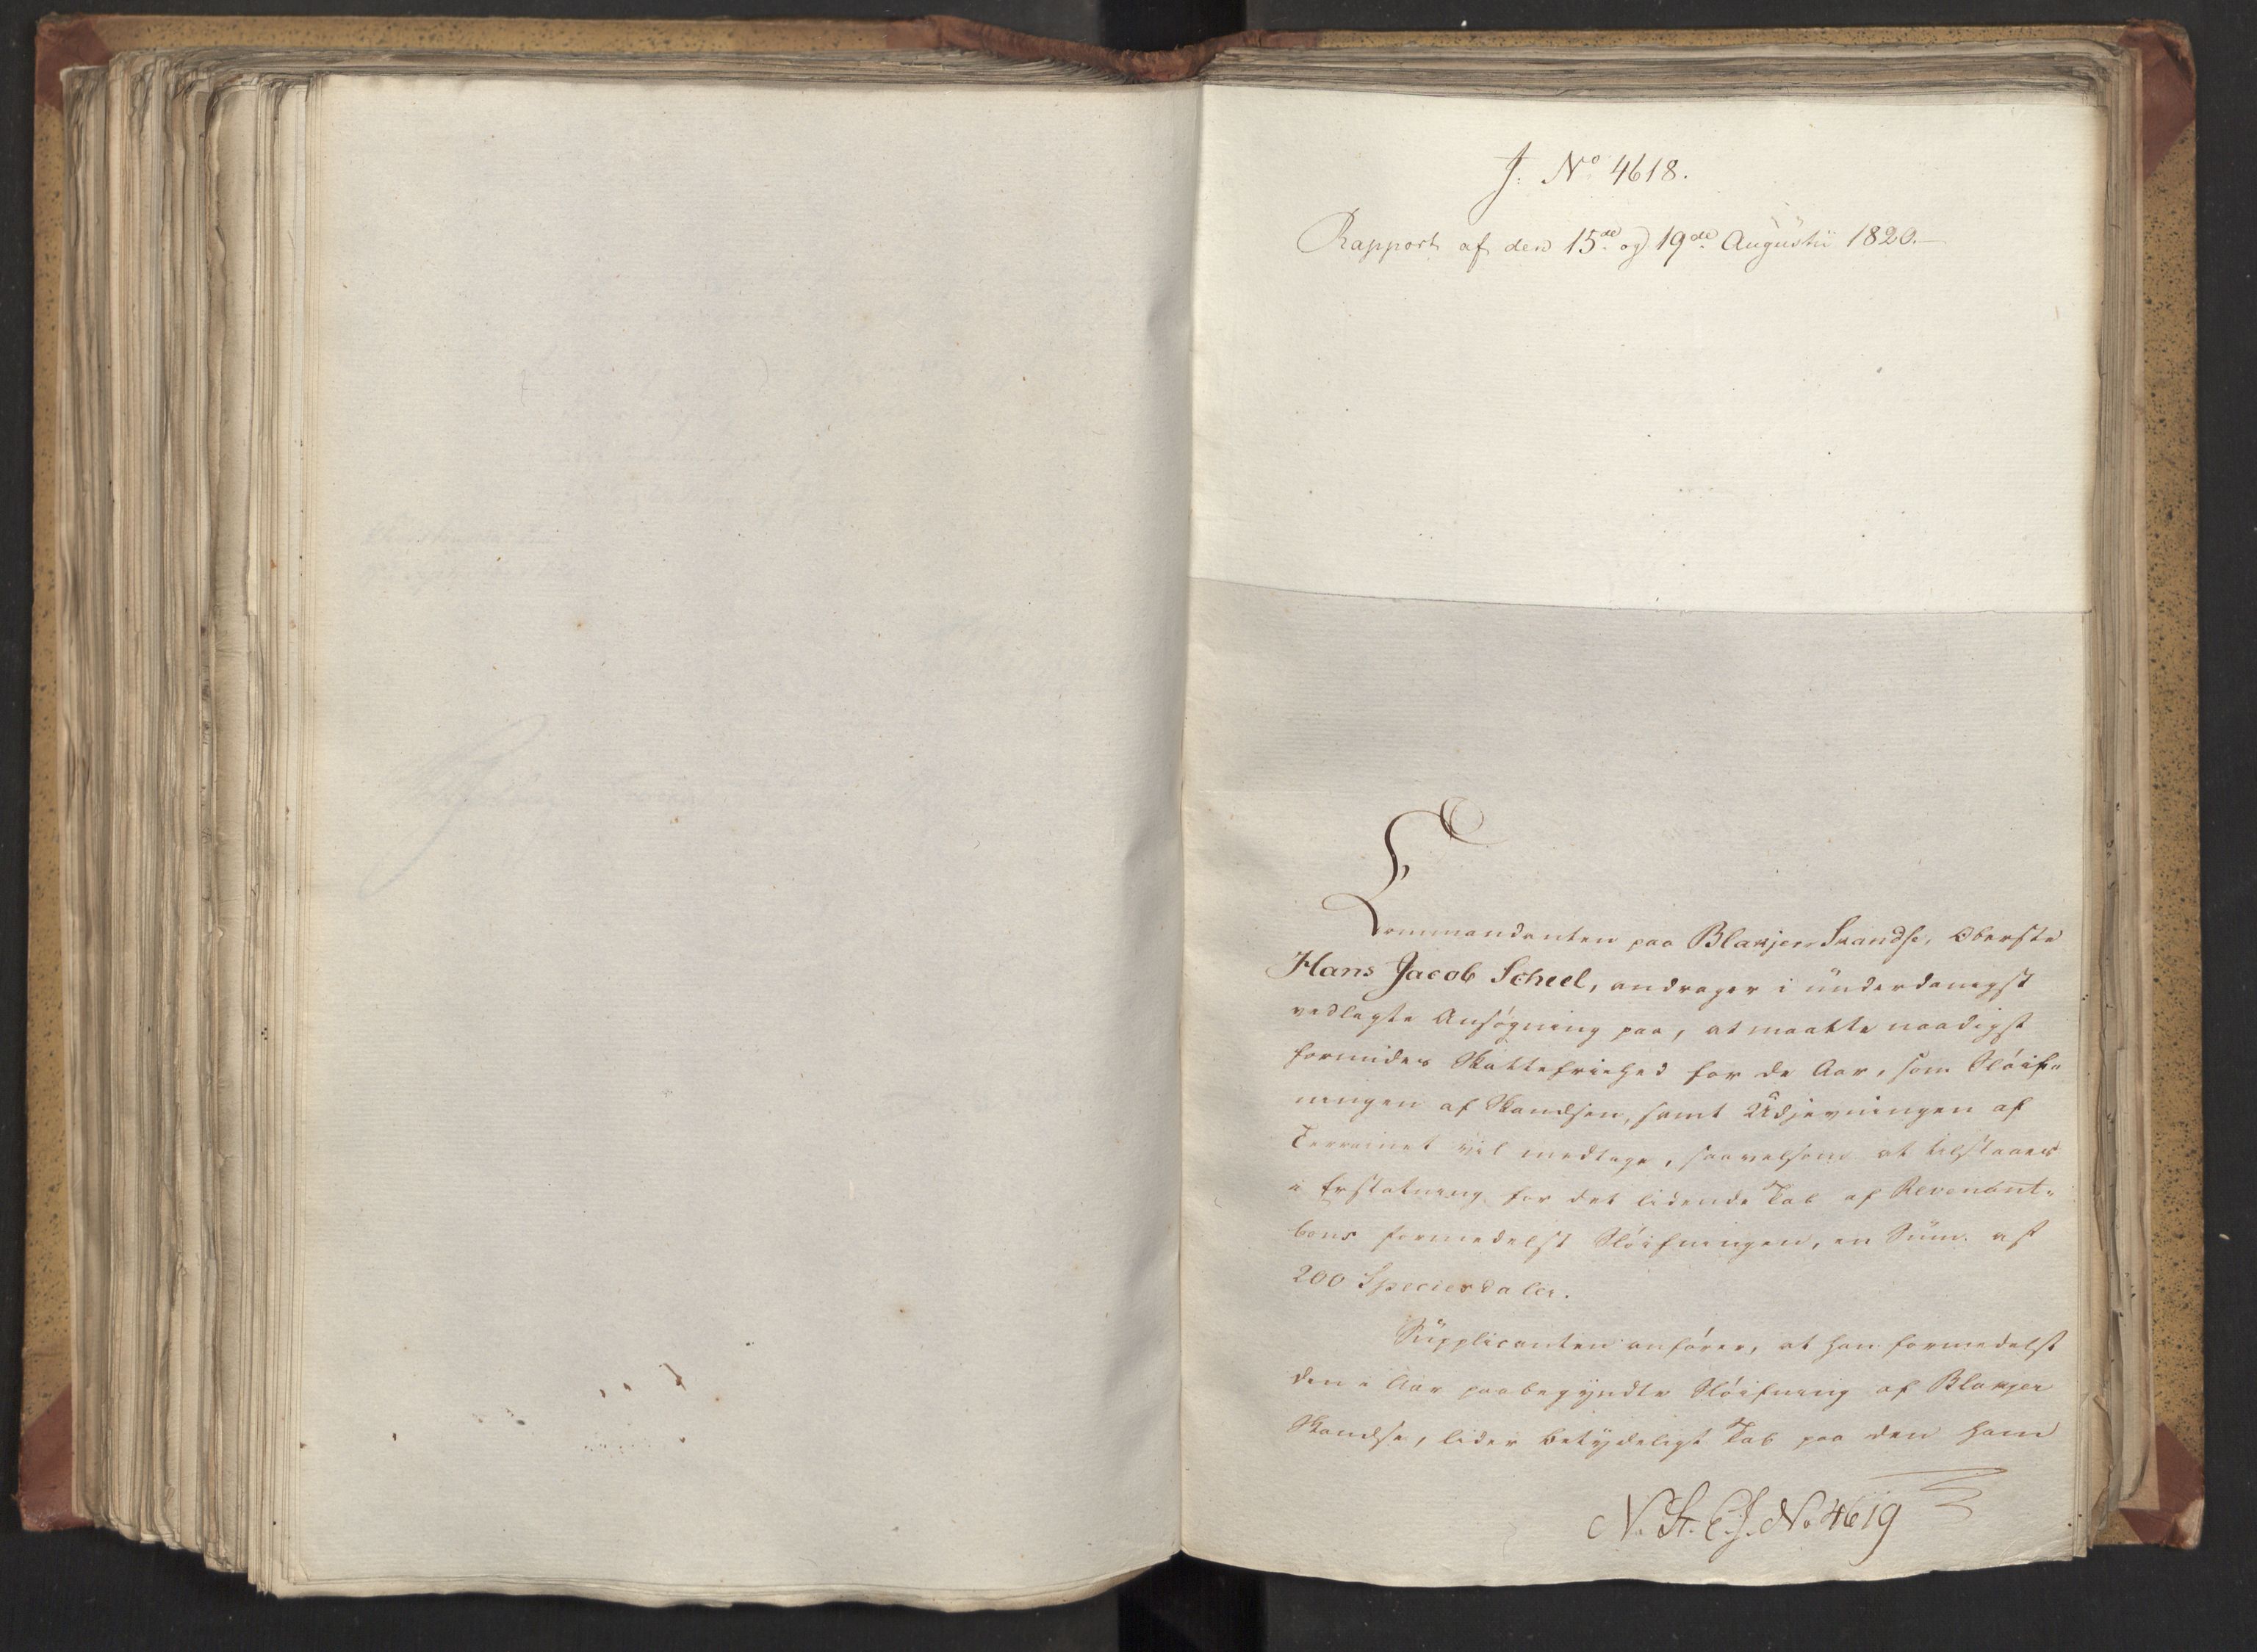 J. No 4618.
Rapport af den 15de og 19de Augustii 1820.—
Commandanten paa Blakjer Skandse, Oberste
Hans Jacob Scheel, andrager i underdanigst
vedlagte Ansøgning paa, at maatte naadigst
forundes Skattefriehed for de Aar, som Sløif-
ningen af Skandsen, samt Udjevningen af
Terrainet vil medtage, saavelsom at tilstaaes
i Erstatning for det lidende Tab af Revenünt-
bons formedelst Sløifningen, en Sum af
200 Speciesdaler.
Supplicanten anfører, at han formedelst
den i Aar paabegyndte Sløifning af Blakjer
Skandse, lider betydeligt Tab paa den ham
N. St. C. J. No 4619